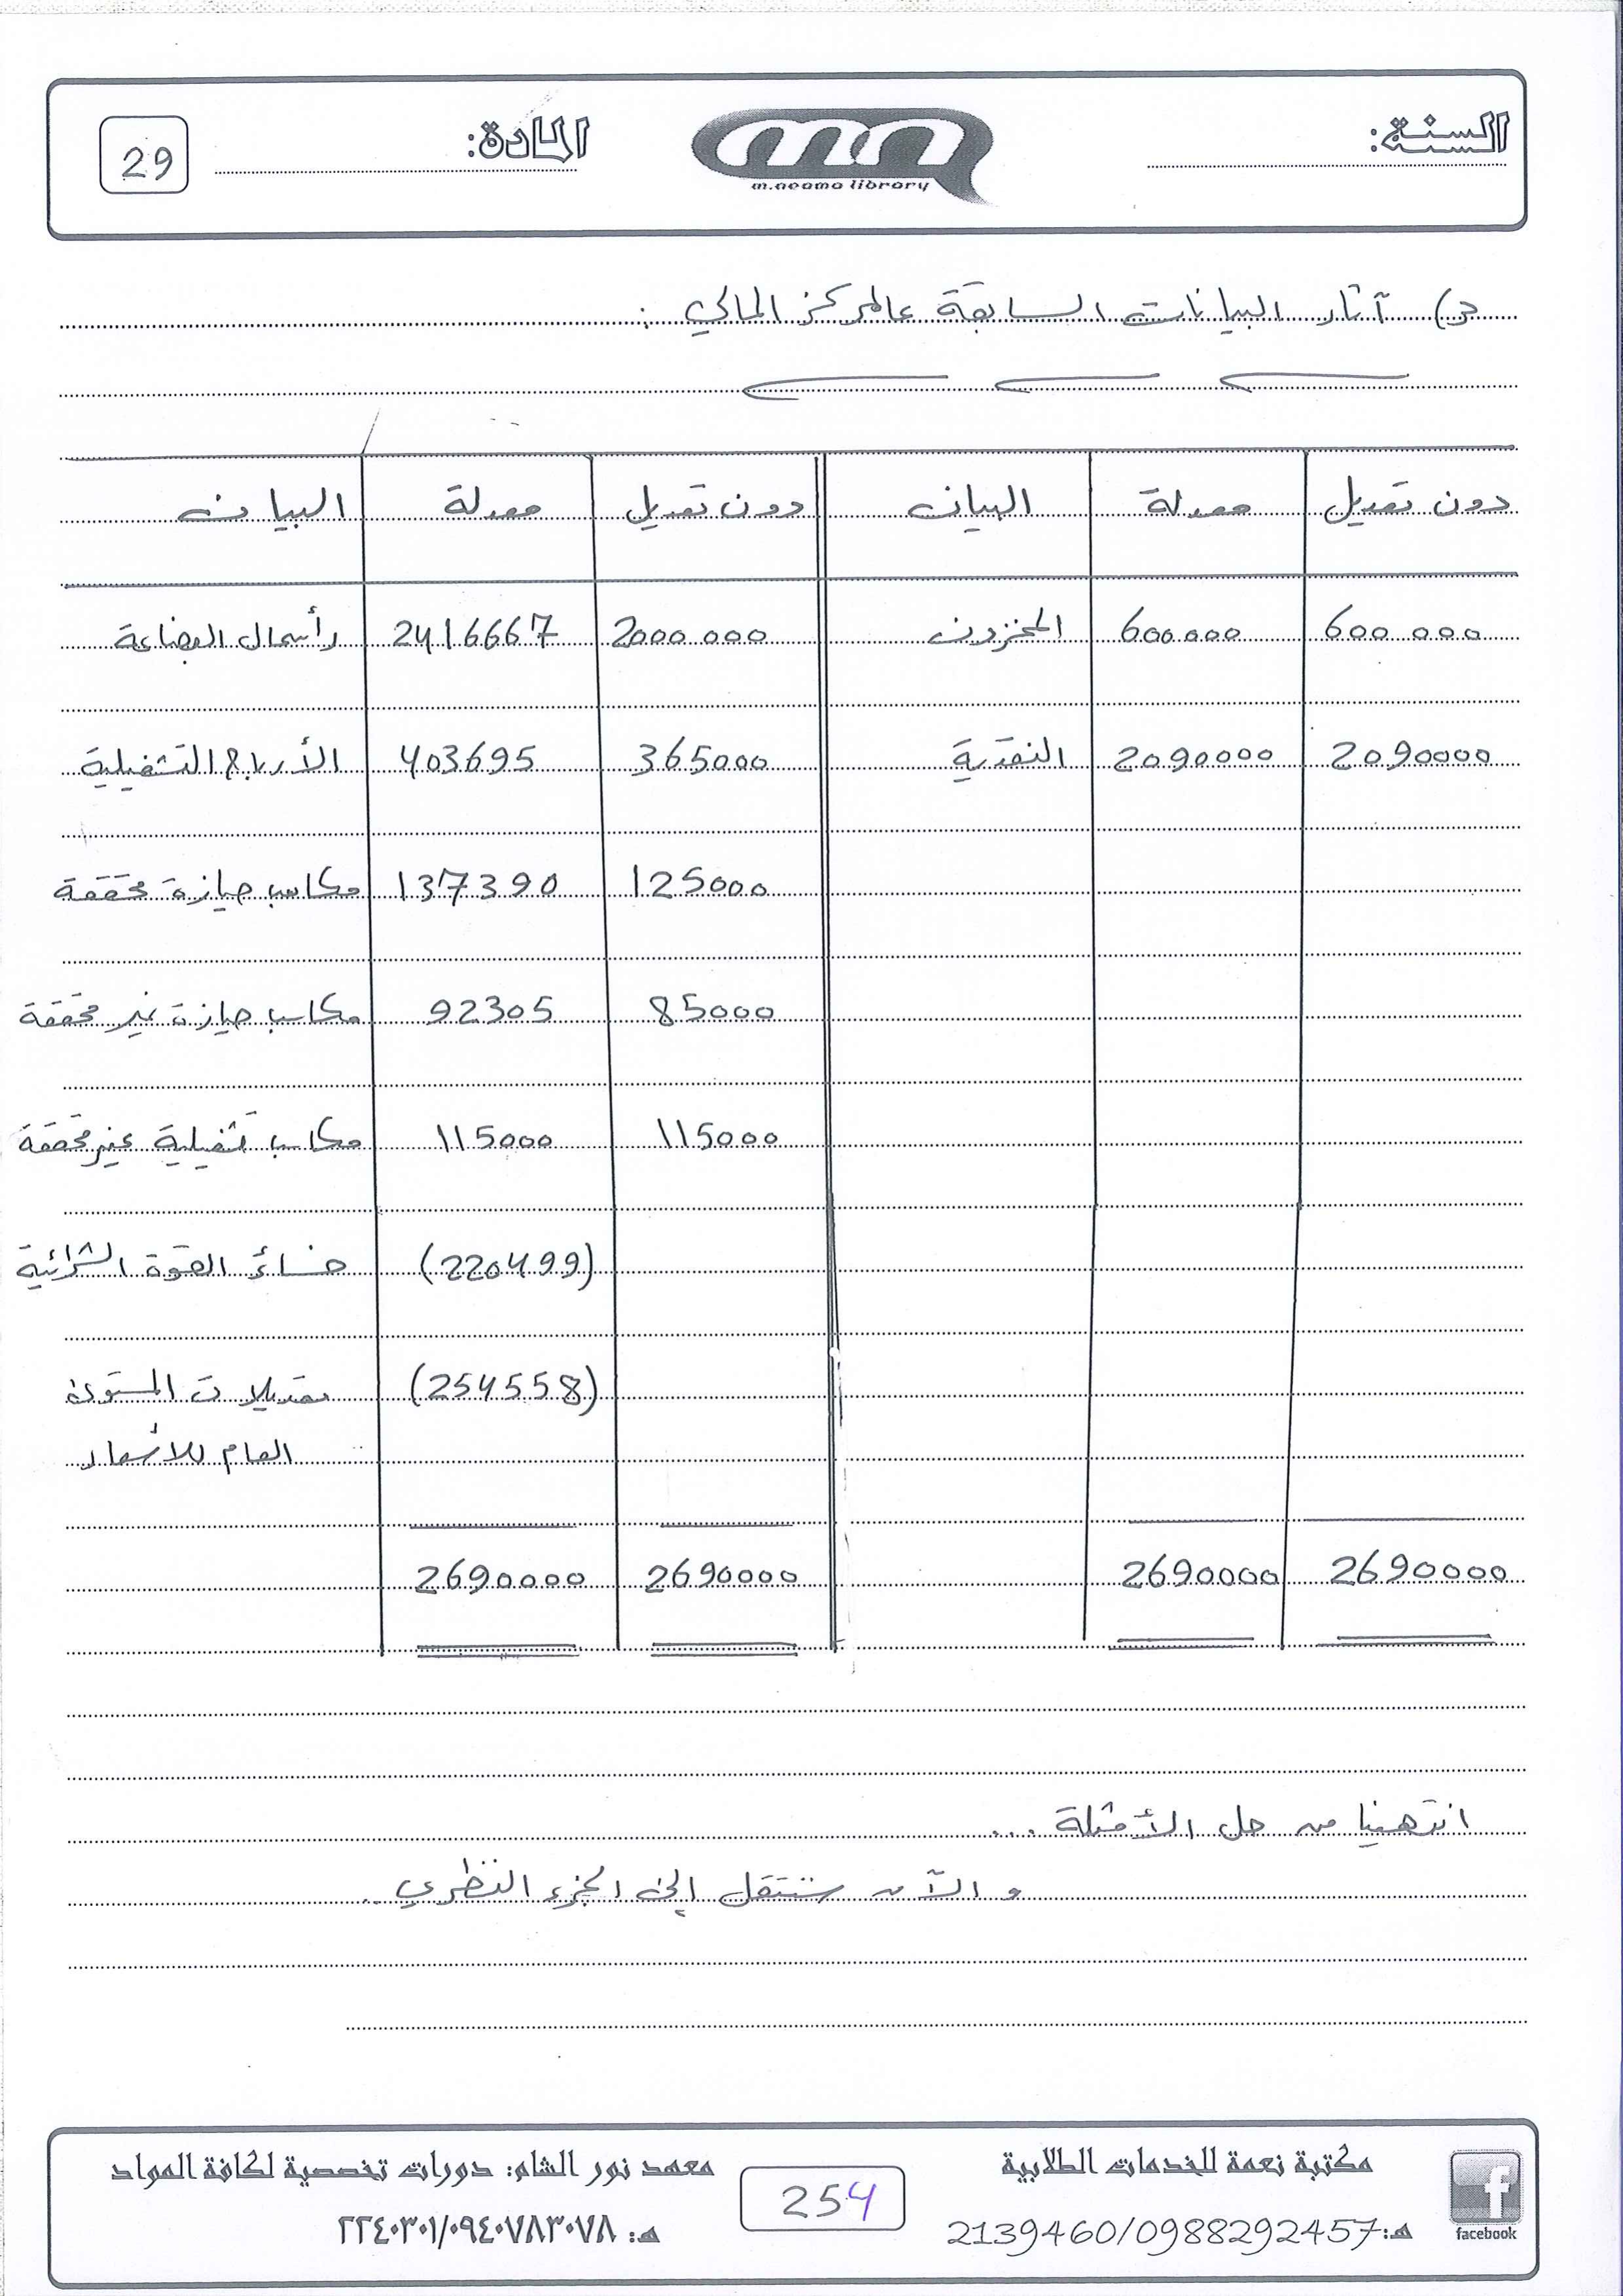 السنة:
mn
m.neama library
المادة:
29
ج) آثار البيانات السابقة عالمركز المالي :
دون تعديل معدلة البيان دون تعديل معدلة البيان
600 000 600000 المخزون 2000000 2416667 رأسمال البضاعة
2090000 2090000 النقدية 365000 403695 الأرباح التشغيلية
125000 137390 مكاسب حيازة محققة
85000 92305 مكاسب حيازة غير محققة
115000 115000 مكاسب تشغيلية غير محققة
(220499) خسائر القوة الشرائية
(254558) تعديلات المستوى
العام للأسعار
2690000 2690000 2690000 2690000
انتهينا من حل الأمثلة ...
و الآن سننتقل إلى الجزء النظري ..
مكتبة نعمة للخدمات الطلابية
هـ: 2139460/0988292457
facebook
254
معهد نور الشام: دورات تخصصية لكافة المواد
هـ: ٢٢٤٠٣٠١/٠٩٤٠٧٨٣٠٧٨